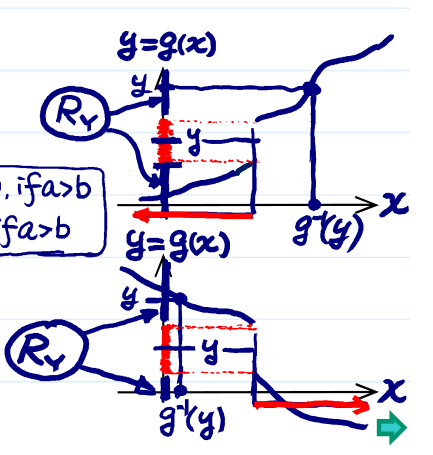 y=g(x)
y
R_Y
y
, if a>b
if a>b
x
g⁻¹(y)
y=g(x)
y
R_Y
y
x
g⁻¹(y)